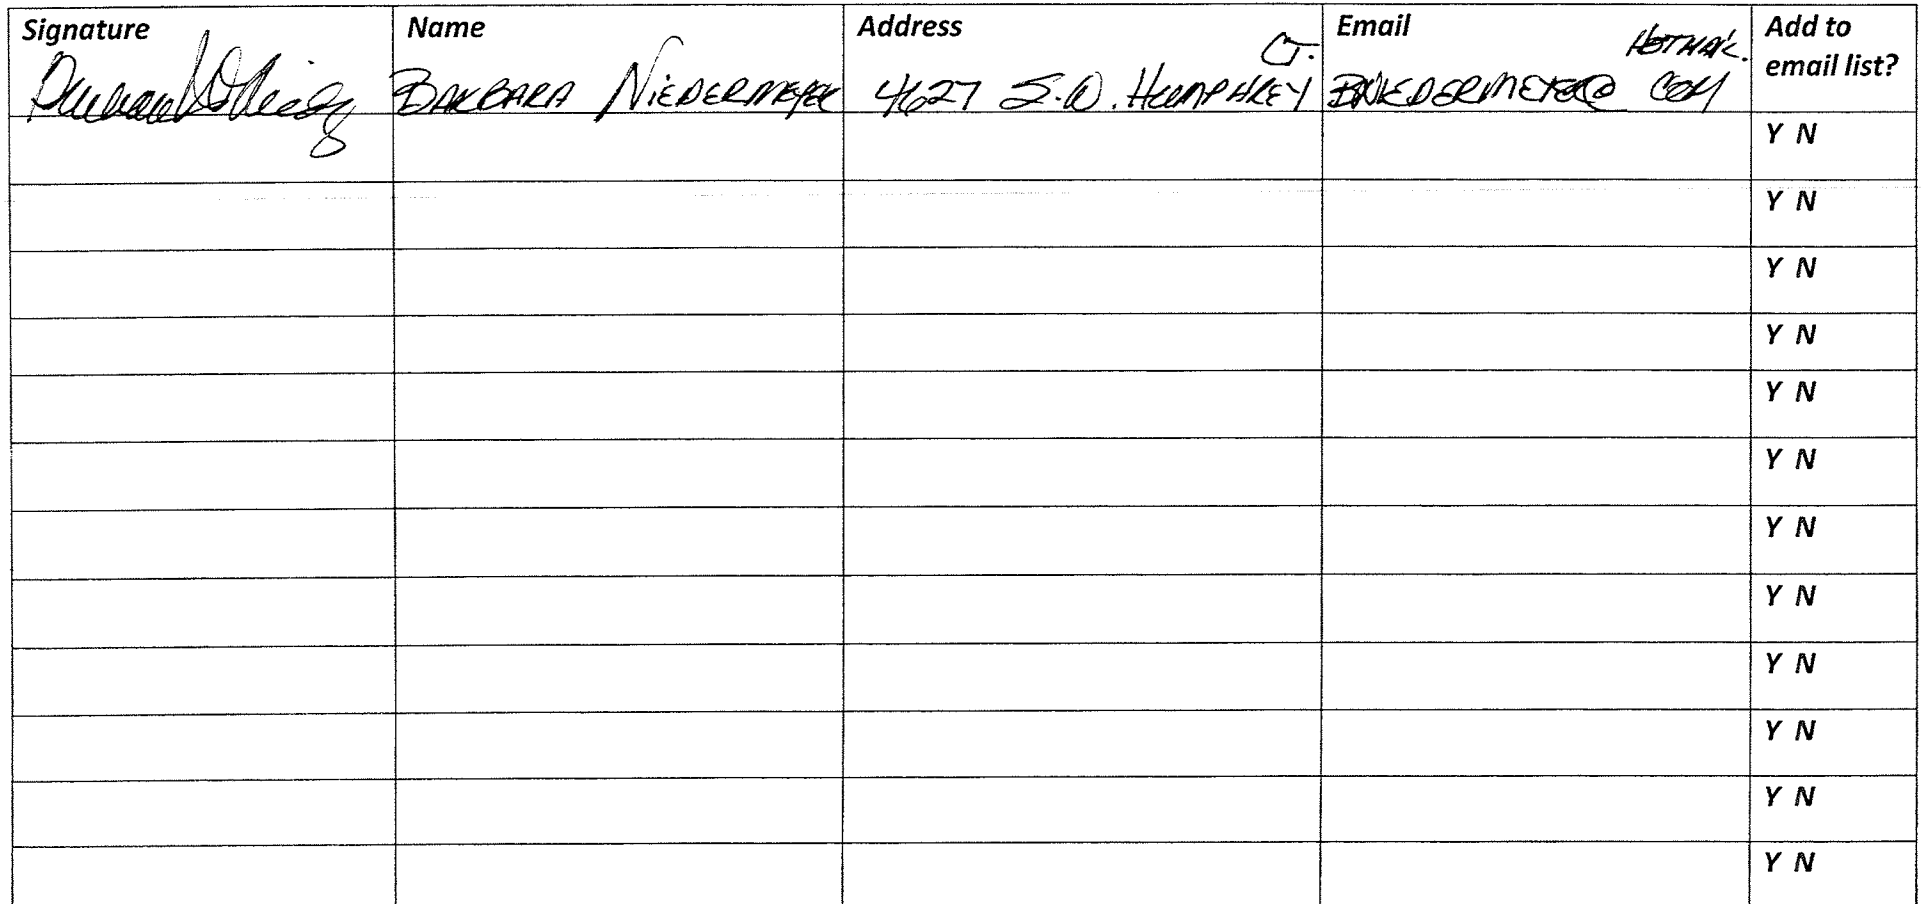 Signature Name Address Email Add to email list?
BARBARA NIEDERMEYER 4627 S.W. HUMPHREY CT. BNIEDERMEYER@ HOTMAIL. COM
Y N
Y N
Y N
Y N
Y N
Y N
Y N
Y N
Y N
Y N
Y N
Y N